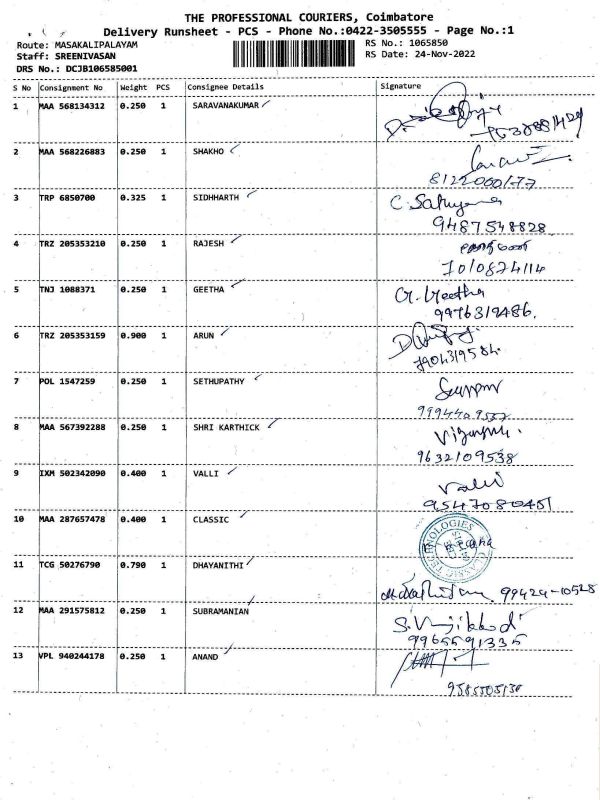 THE PROFESSIONAL COURIERS, Coimbatore
Delivery Runsheet - PCS - Phone No.:0422-3505555 - Page No.:1
Route: MASAKALIPALAYAM
RS No.: 1065850
Staff: SREENIVASAN
RS Date: 24-Nov-2022
DRS No.: DCJB106585001
S No Consignment No Weight PCS Consignee Details Signature
1 MAA 568134312 0.250 1 SARAVANAKUMAR
2 MAA 568226883 0.250 1 SHAKHO
8122000177
3 TRP 6850700 0.325 1 SIDHHARTH C. Sathya
9487548828
4 TRZ 205353210 0.250 1 RAJESH
7010874114
5 TNJ 1088371 0.250 1 GEETHA G. Geetha
9976319486.
6 TRZ 205353159 0.900 1 ARUN
7904319584.
7 POL 1547259 0.250 1 SETHUPATHY
8 MAA 567392288 0.250 1 SHRI KARTHICK
9632109538
9 IXM 502342090 0.400 1 VALLI Valli
9547080451
10 MAA 287657478 0.400 1 CLASSIC
CLASSIC TECHNOLOGIES
11 TCG 50276790 0.790 1 DHAYANITHI
99424-10528
12 MAA 291575812 0.250 1 SUBRAMANIAN
9965591335
13 VPL 940244178 0.250 1 ANAND
9585505130